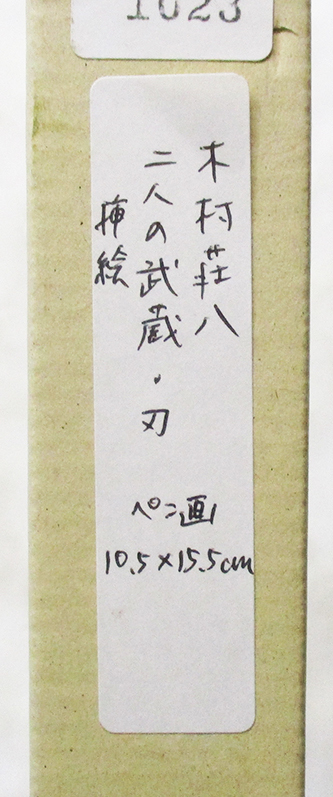 1023
木村荘八
二人の武蔵・刃
挿絵
ペン画
10.5×15.5cm